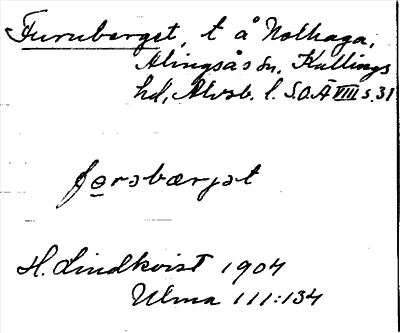 Furuberget, t å Nolhaga,
Alingsås sn. Kullings
hd, Älvsb. l. S.O.Ä VIII s. 31
H. Lindkvist 1904
Ulma 111:134